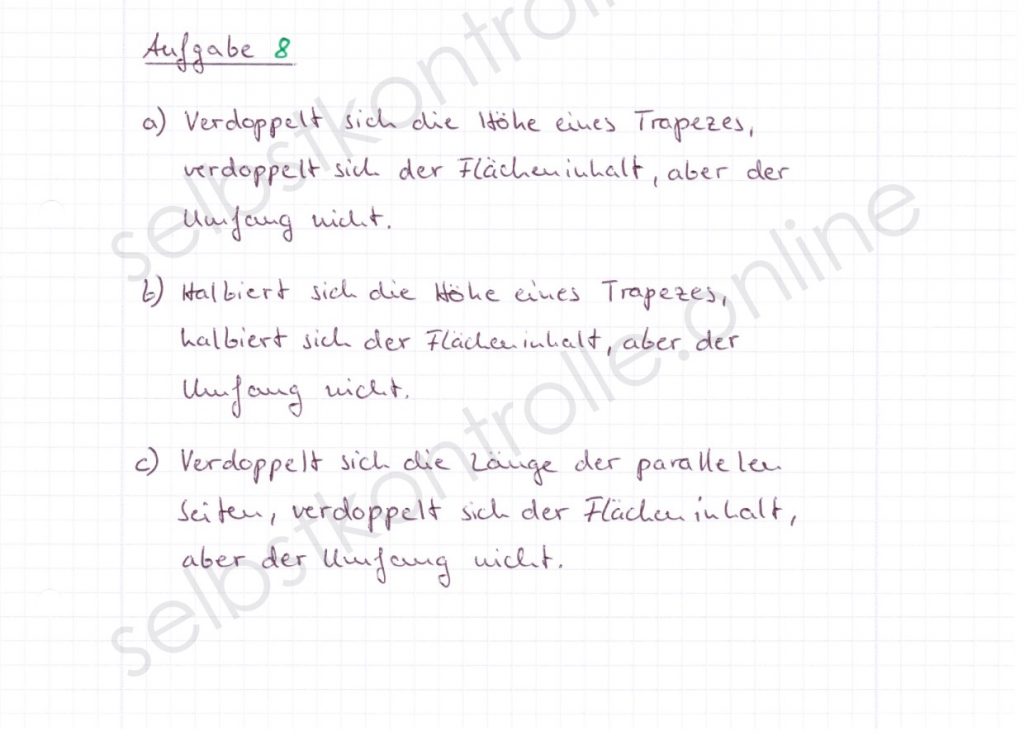 Aufgabe 8
a) Verdoppelt sich die Höhe eines Trapezes,
verdoppelt sich der Flächeninhalt, aber der
Umfang nicht.
b) Halbiert sich die Höhe eines Trapezes,
halbiert sich der Flächeninhalt, aber der
Umfang nicht.
c) Verdoppelt sich die Länge der parallelen
Seiten, verdoppelt sich der Flächeninhalt,
aber der Umfang nicht.
selbstkontrolle.online
selbstkontrolle.online